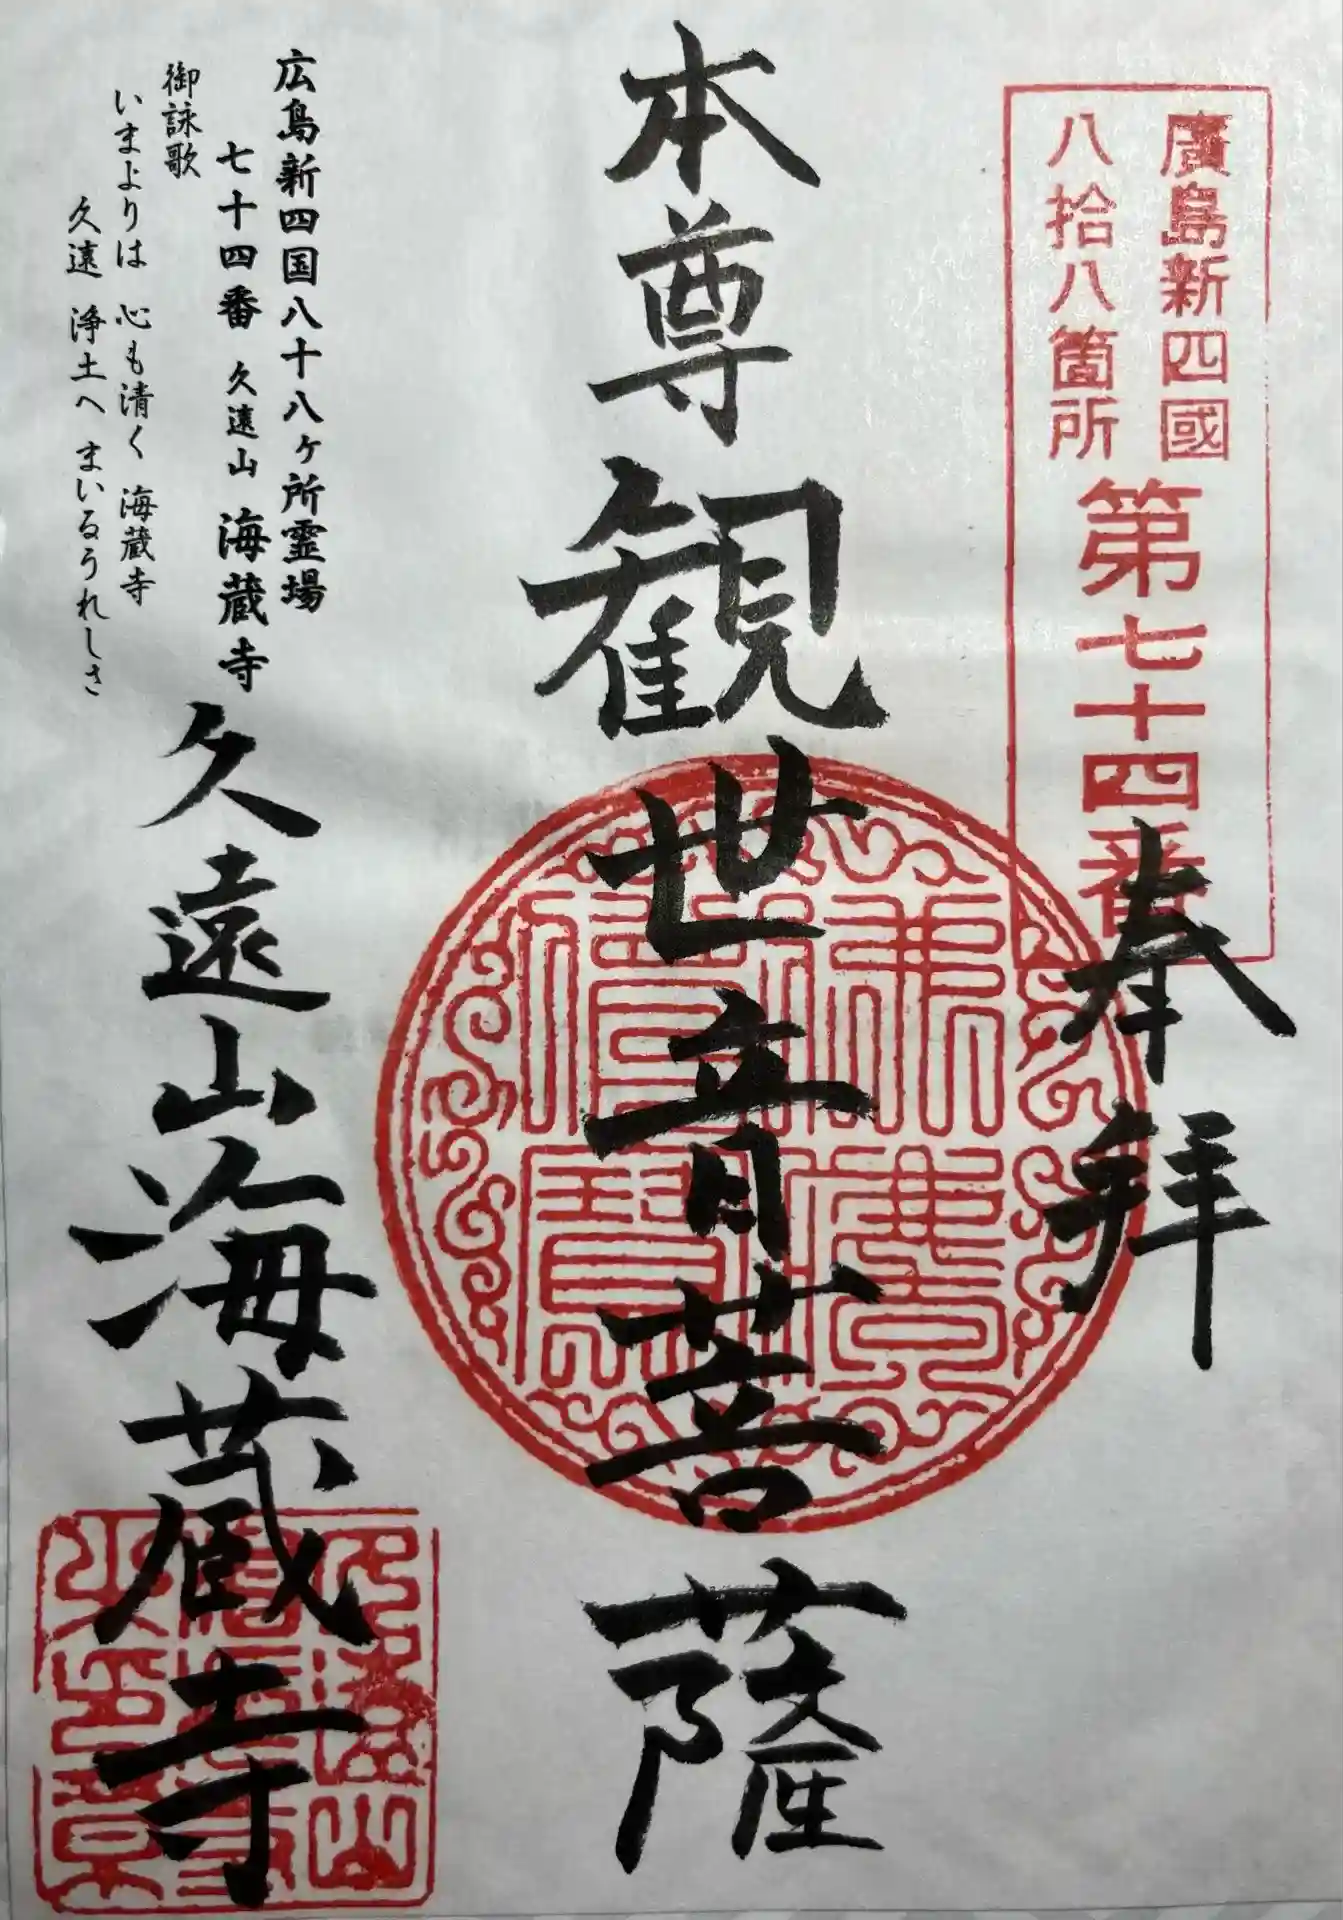 廣島新四國
八拾八箇所
第七十四番
奉拝
本尊観世音菩薩
広島新四国八十八ヶ所霊場
七十四番 久遠山 海蔵寺
御詠歌
いまよりは 心も清く 海蔵寺
久遠 浄土へ まいるうれしさ
久遠山海蔵寺
佛法僧寶